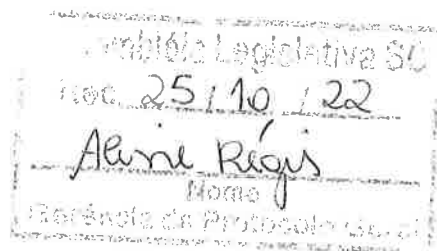 Assembléia Legislativa SC
Rec. 25/10/22
Aline Régis
Nome
Gerência de Protocolo Geral